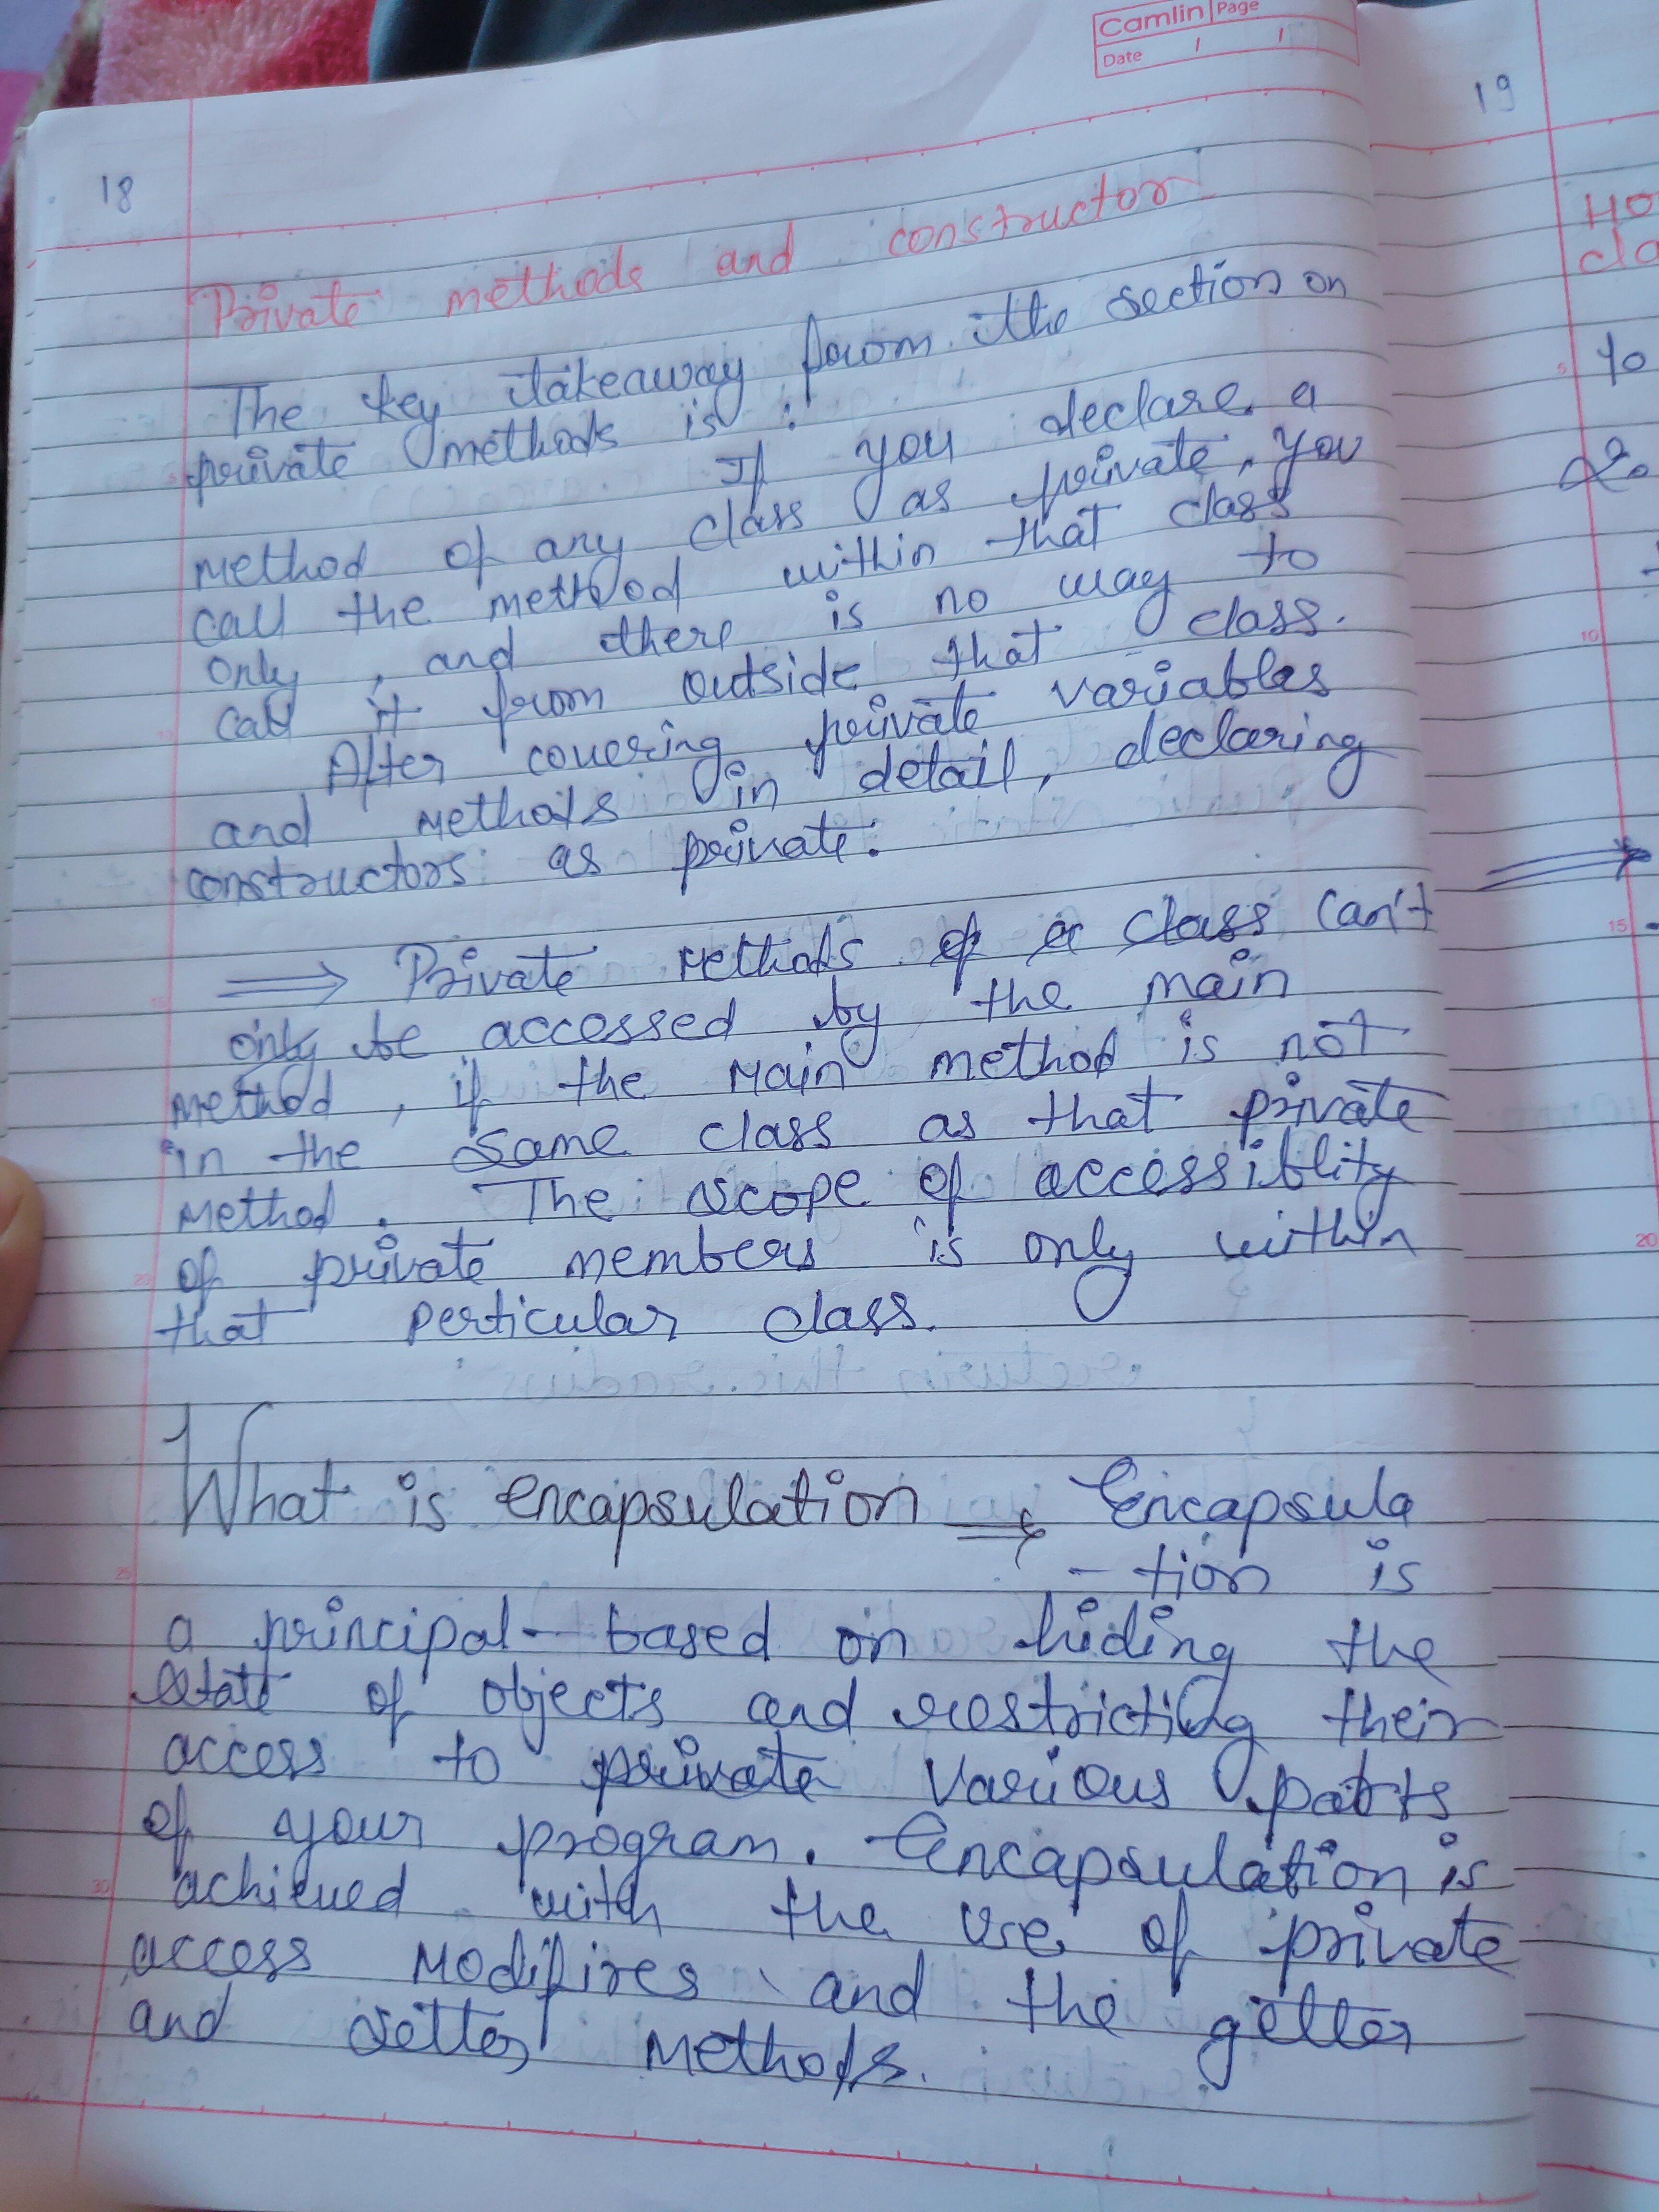 Camlin Page
Date / /
18
Private methods and constructor
The key takeaway from the section on
private methods is :
If you declare a
method of any class as private, you
call the method within that class
only , and there is no way to
call it from outside that class.
After covering private variables
and methods in detail, declaring
constructors as private:
⇒ Private methods of a class can't
only be accessed by the main
method , if the main method is not
in the same class as that private
method . The scope of accessiblity
of private members is only within
that perticular class.
What is encapsulation ⇒ Encapsula
- tion is
a principal- based on hiding the
state of objects and restricting their
access to private various parts
of your program. Encapsulation is
achieved with the use of private
access modifires and the getter
and setter methods.
19
HO
cla
10
2.
⇒